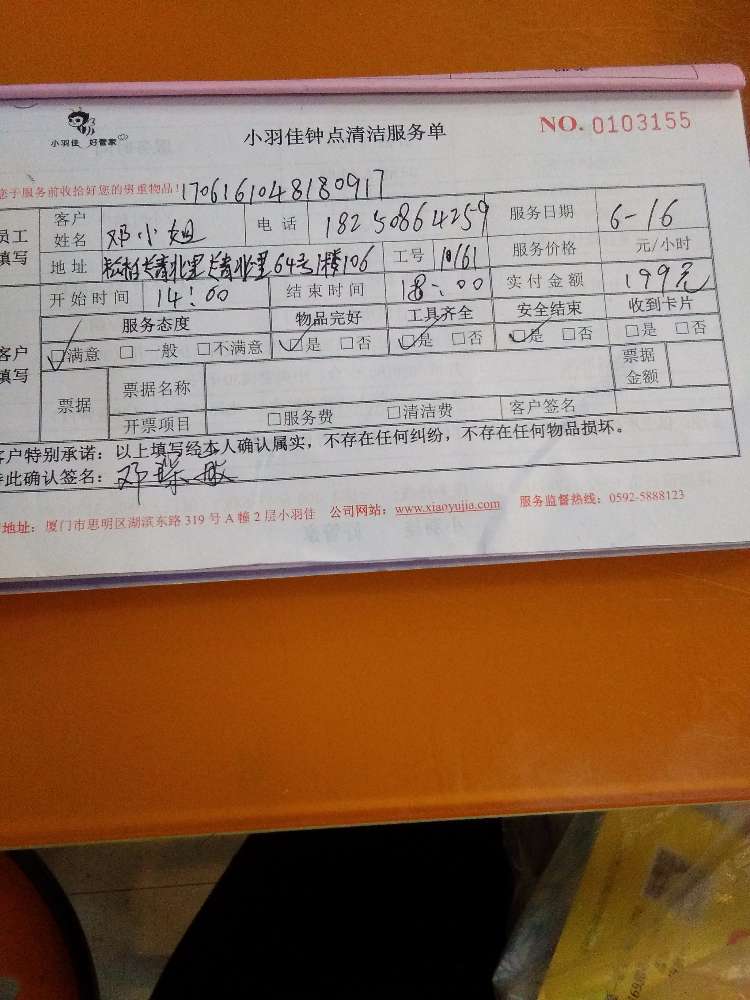 小羽佳 好管家
小羽佳钟点清洁服务单
NO. 0103155
您于服务前收拾好您的贵重物品! 1706161048180917
员工填写 客户姓名 邓小姐 电话 18250864259 服务日期 6-16
地址 松柏长青北里长青北里64号1楼106 工号 10161 服务价格 元/小时
开始时间 14:00 结束时间 18:00 实付金额 199元
客户填写 服务态度 物品完好 工具齐全 安全结束 收到卡片
☑满意 □一般 □不满意 ☑是 □否 ☑是 □否 ☑是 □否 □是 □否
票据 票据名称 票据金额
开票项目 □服务费 □清洁费 客户签名
客户特别承诺：以上填写经本人确认属实，不存在任何纠纷，不存在任何物品损坏。
特此确认签名：邓
地址：厦门市思明区湖滨东路319号A幢2层小羽佳 公司网站：www.xiaoyujia.com 服务监督热线：0592-5888123